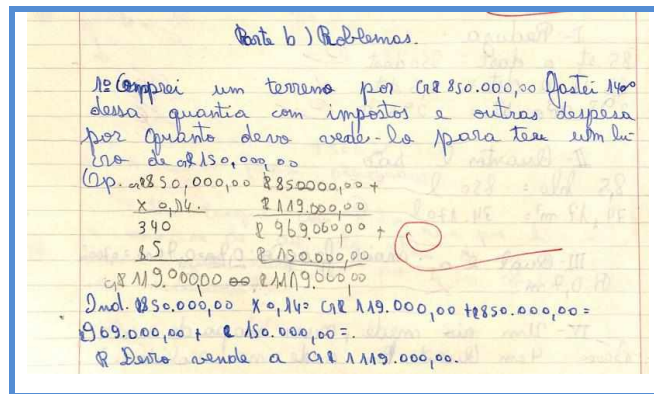 Parte b) Problemas.
1º Comprei um terreno por Cr$ 850.000,00 Gastei 14%
dessa quantia com impostos e outras despesa
por quanto devo vede-lo para teu um lu-
cro de Cr$ 150,000,00
Op. Cr$ 850,000,00 $ 850000,00 +
x 0,14. $ 119.000,00
340 $ 969.000,00 +
85 $ 150.000,00
Cr$ 119.000,00 $ 1119.000,00
Ind. $ 850.000,00 x 0,14 = Cr$ 119.000,00 + $ 850.000,00 =
969.000,00 + $ 150.000,00 =.
R Devo vende a Cr$ 1119.000,00.